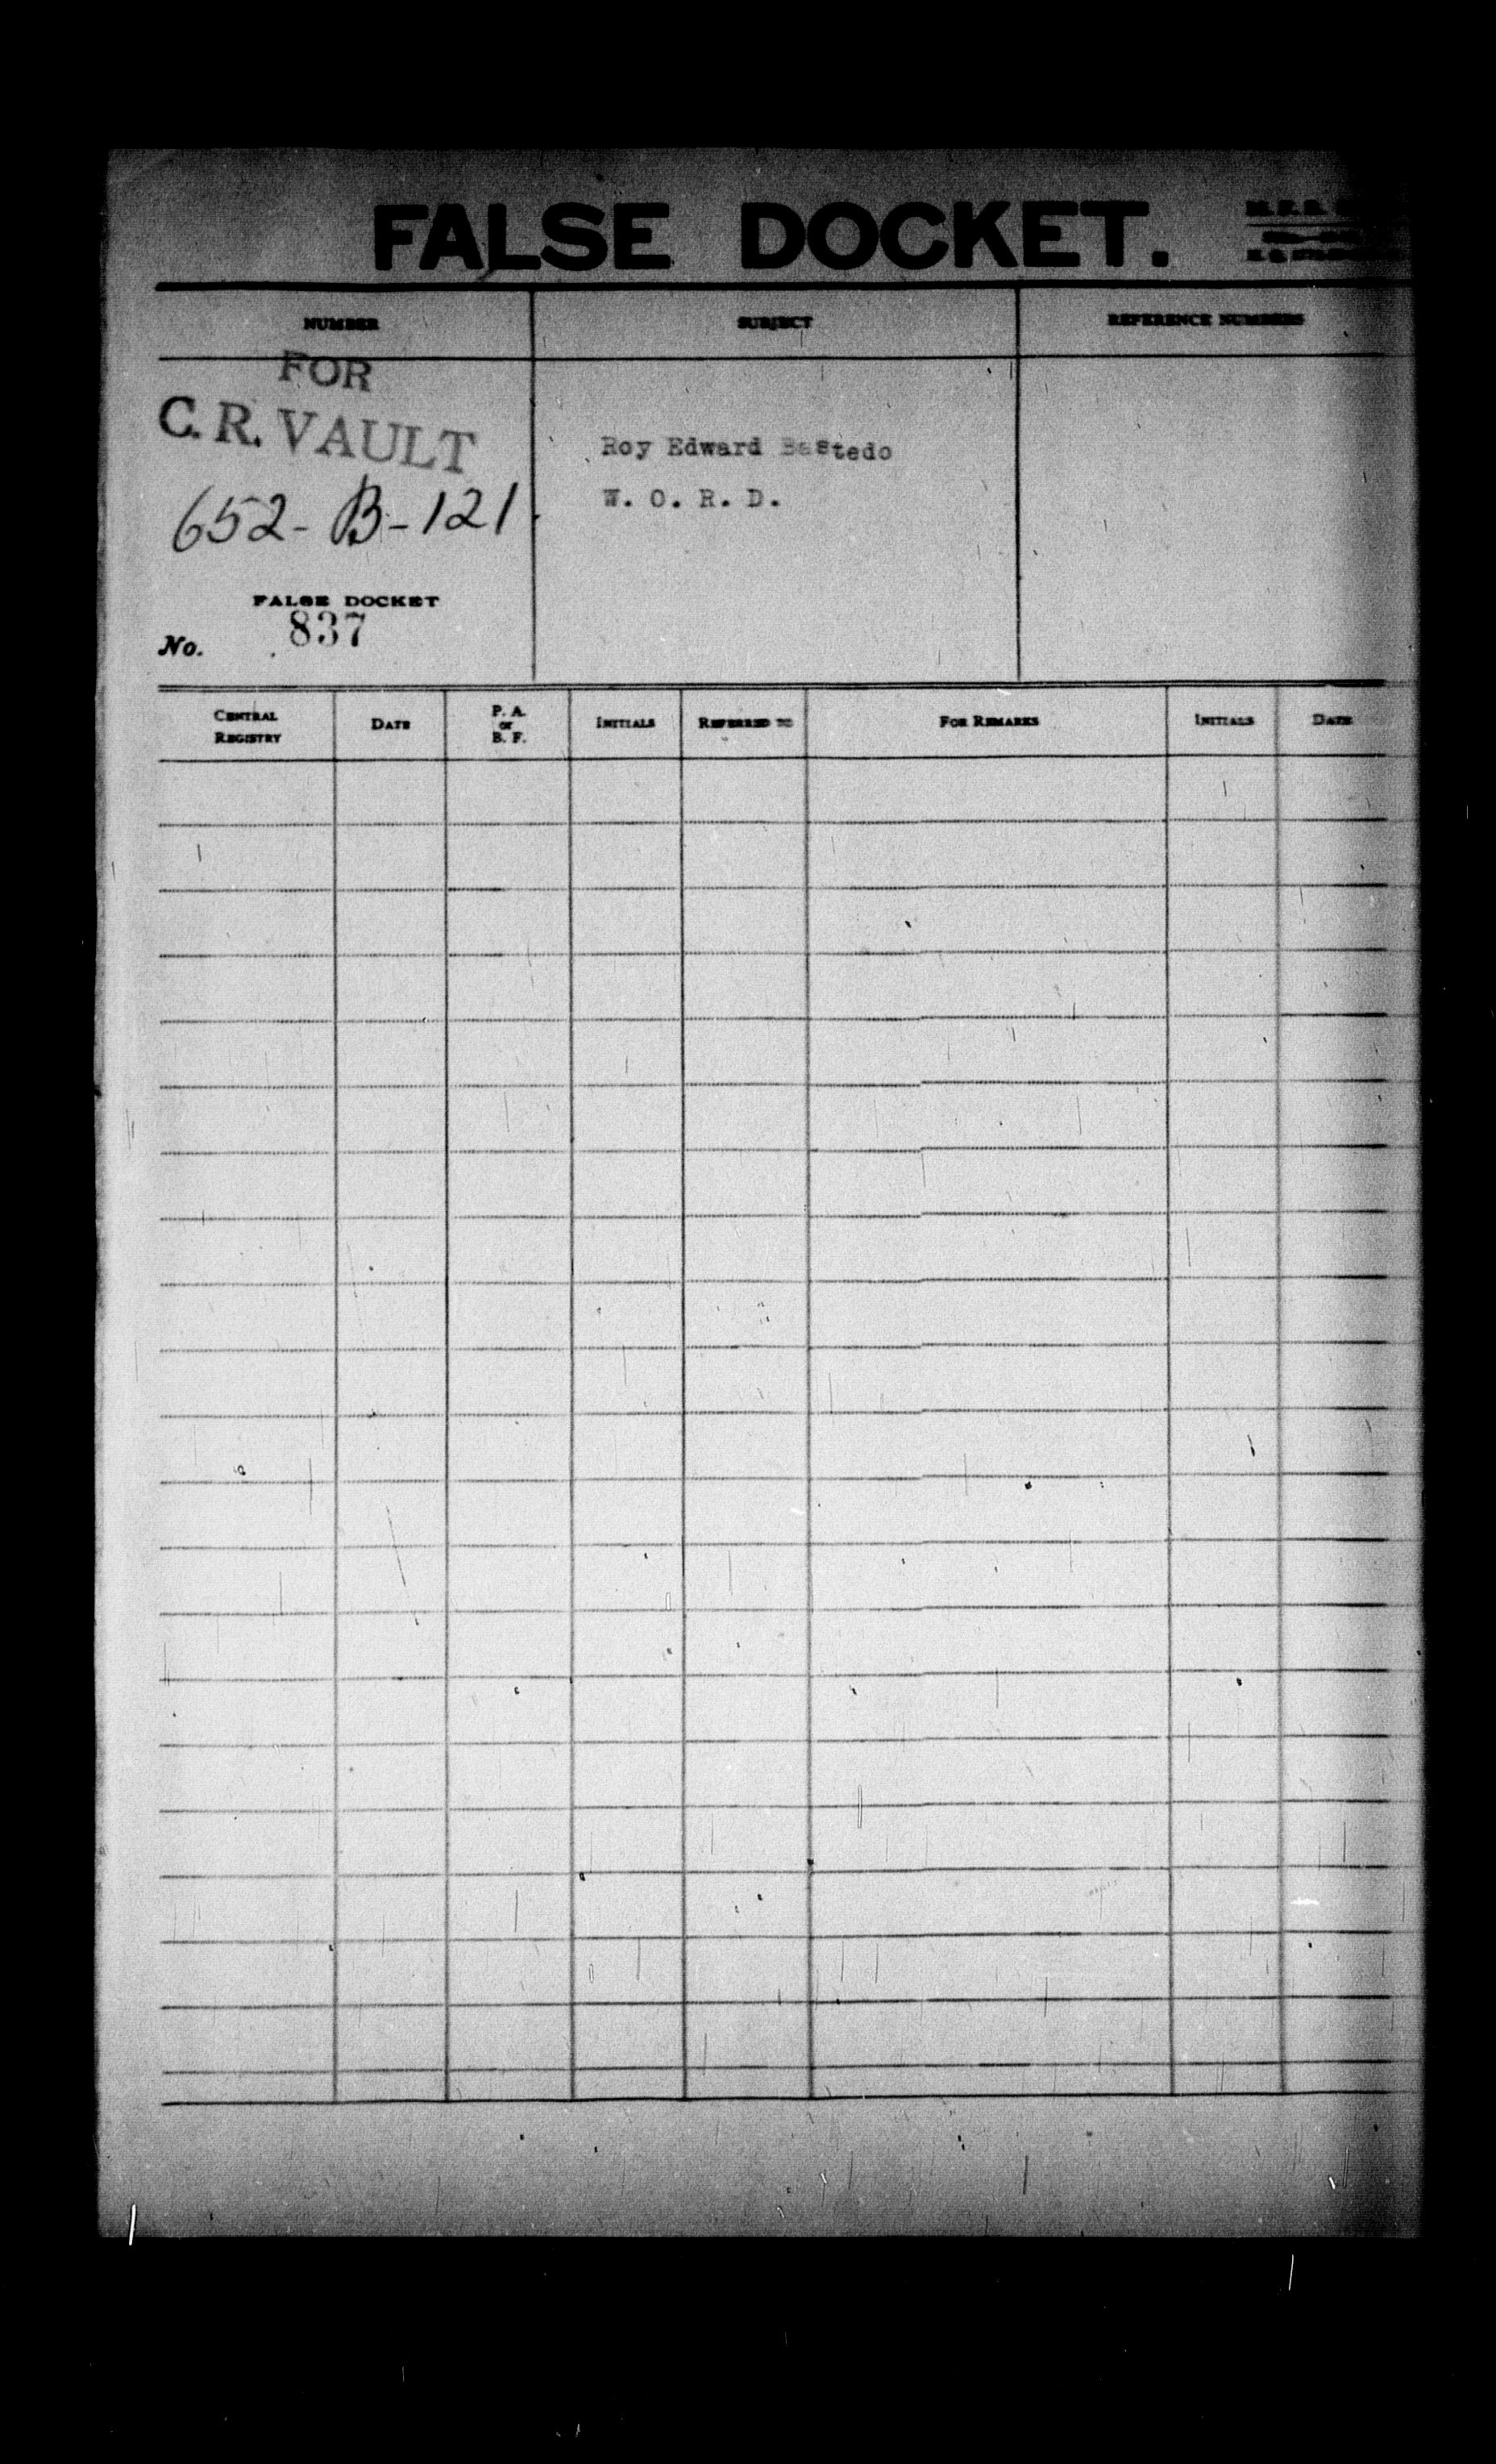 FALSE DOCKET.
NUMBER
SUBJECT
REFERENCE NUMBERS
FOR
C. R. VAULT
652-B-121
Roy Edward Bastedo
W. O. R. D.
FALSE DOCKET
No. 837
CENTRAL REGISTRY
DATE
P. A. or B. F.
INITIALS
REFERRED TO
FOR REMARKS
INITIALS
DATE